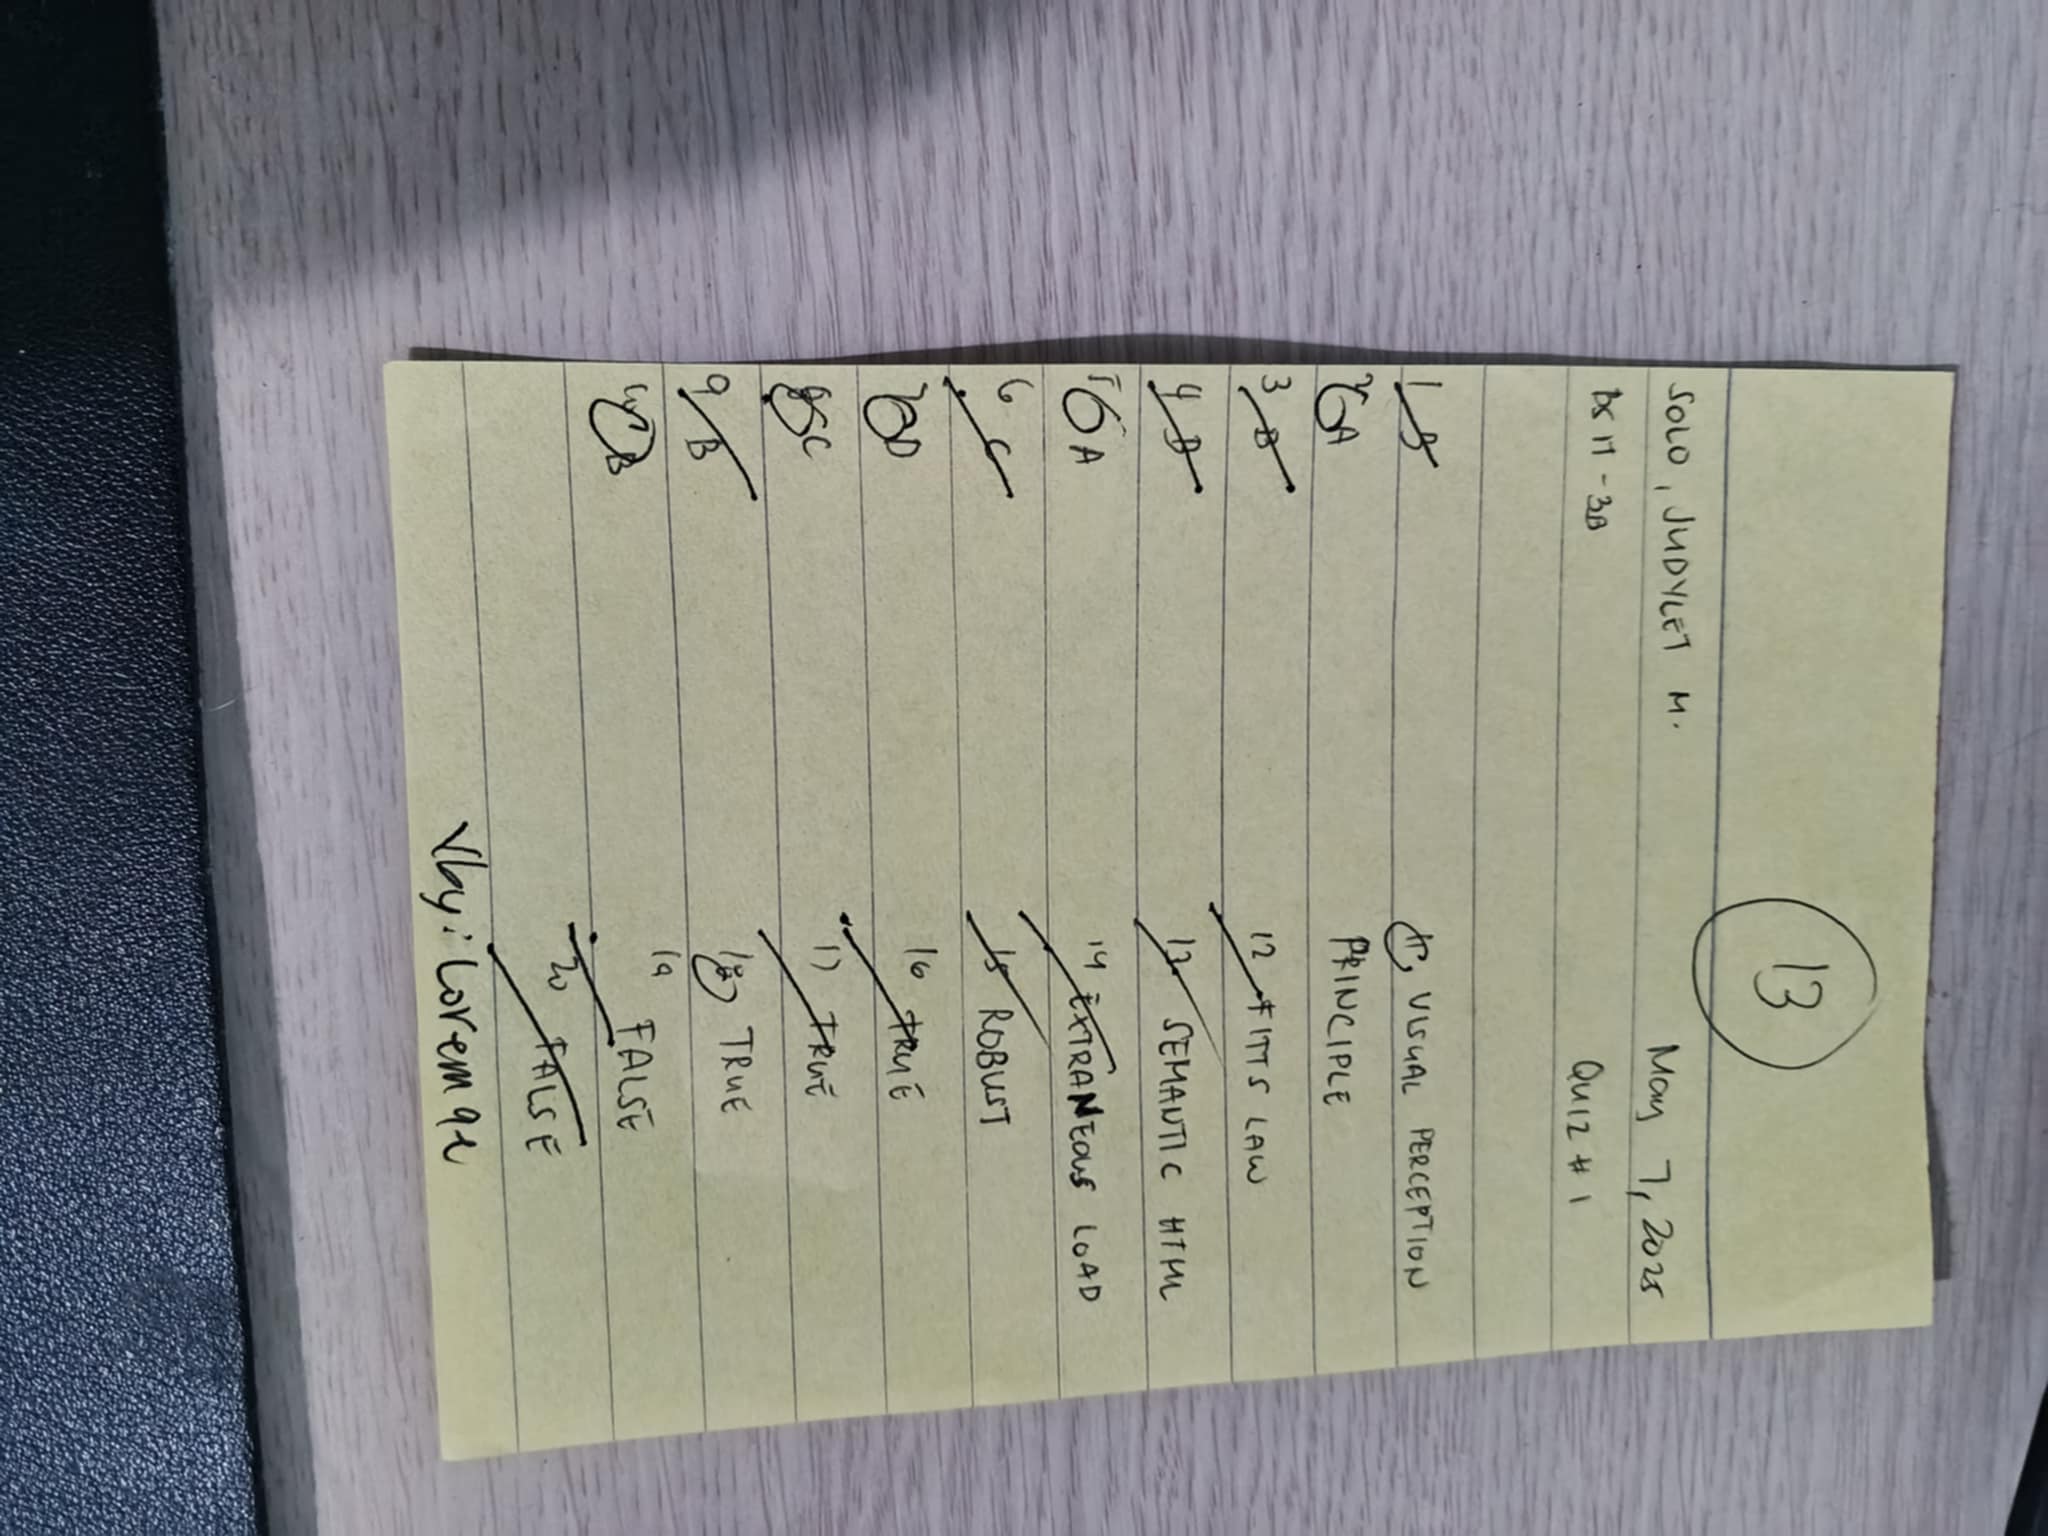 13
SOLO, JUDYLET M.
May 7, 2025
BS IT - 3B
QUIZ # 1
1 B
2 A
3 B
4 B
5 A
6 C
7 D
8 C
9 B
10 B
11 VISUAL PERCEPTION
PRINCIPLE
12 FITTS LAW
13 SEMANTIC HTML
14 EXTRANEOUS LOAD
15 ROBUST
16 TRUE
17 TRUE
18 TRUE
19 FALSE
20 FALSE
by: Loremae